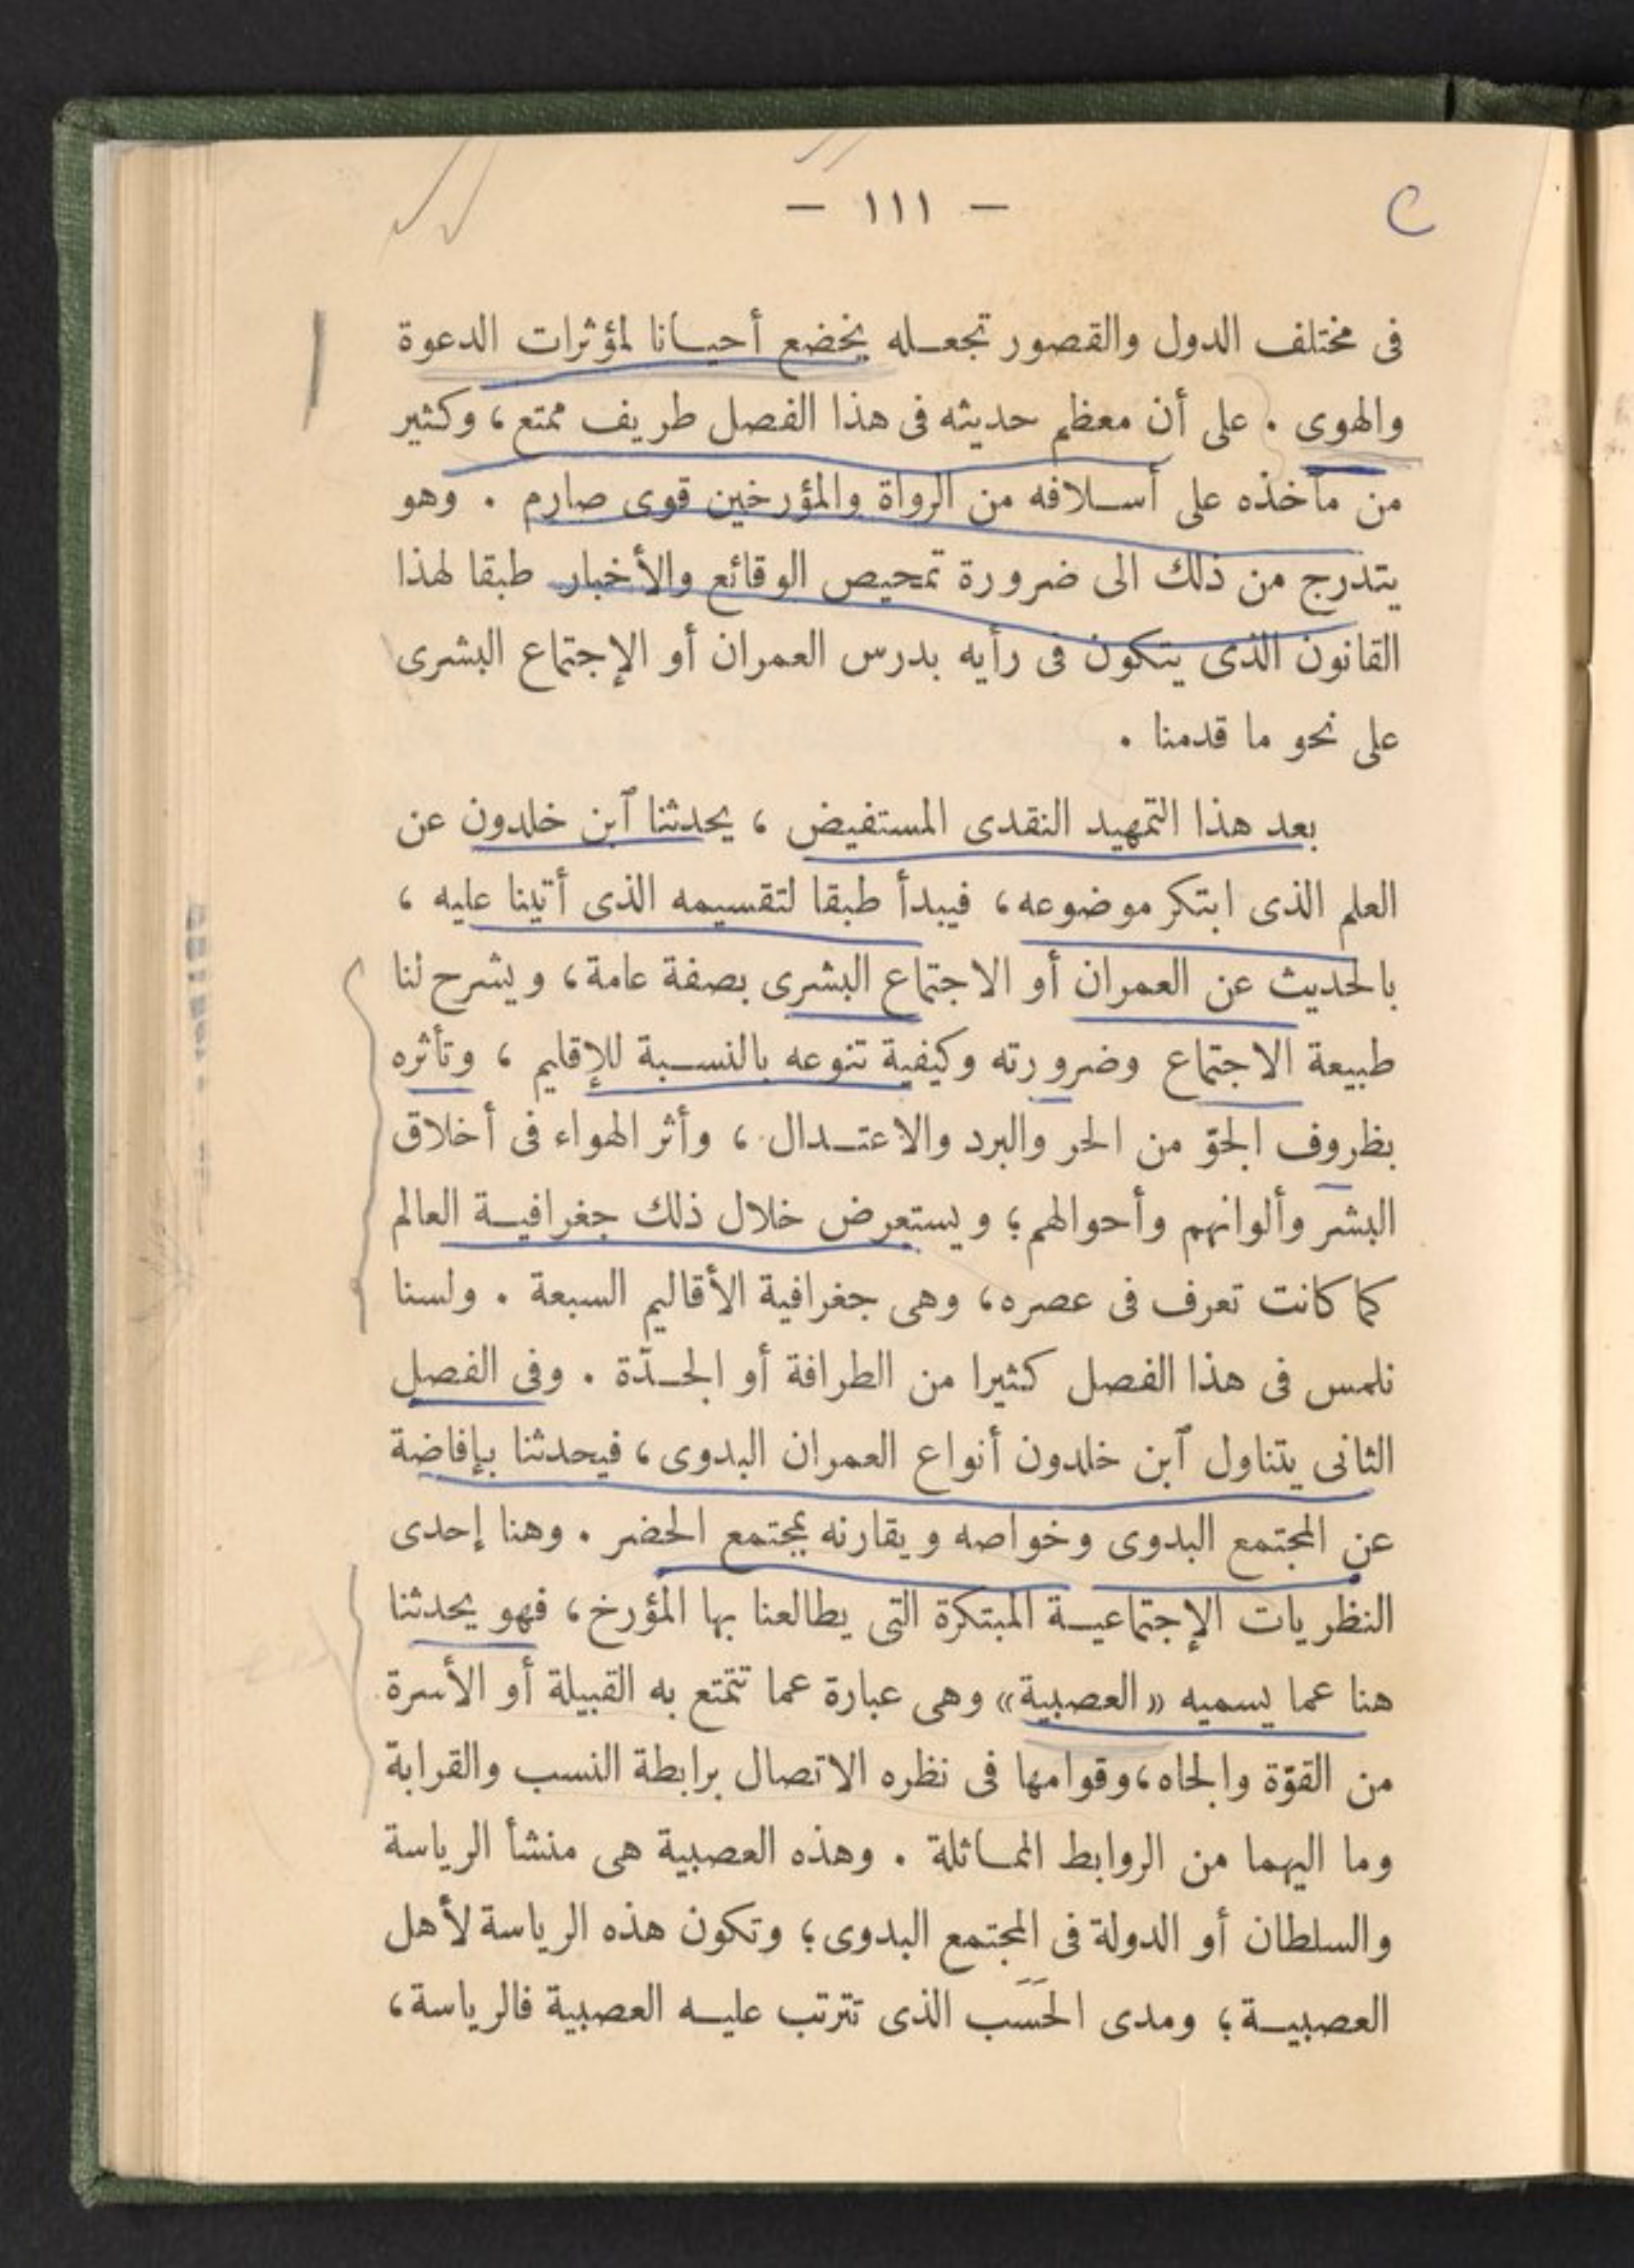 — ١١١ —
فى مختلف الدول والقصور تجعله يخضع أحيانا لمؤثرات الدعوة
والهوى . على أن معظم حديثه فى هذا الفصل طريف ممتع، وكثير
من مآخذه على أسلافه من الرواة والمؤرخين قوى صارم . وهو
يتدرج من ذلك الى ضرورة تمحيص الوقائع والأخبار طبقا لهذا
القانون الذى يتكون فى رأيه بدرس العمران أو الإجتماع البشرى
على نحو ما قدمنا .
بعد هذا التمهيد النقدى المستفيض ، يحدثنا آبن خلدون عن
العلم الذى ابتكر موضوعه، فيبدأ طبقا لتقسيمه الذى أتينا عليه ،
بالحديث عن العمران أو الاجتماع البشرى بصفة عامة، ويشرح لنا
طبيعة الاجتماع وضرورته وكيفية تنوعه بالنسبة للإقليم ، وتأثره
بظروف الجوّ من الحر والبرد والاعتدال ، وأثر الهواء فى أخلاق
البشر وألوانهم وأحوالهم؛ ويستعرض خلال ذلك جغرافية العالم
كما كانت تعرف فى عصره، وهى جغرافية الأقاليم السبعة . ولسنا
نلمس فى هذا الفصل كثيرا من الطرافة أو الجدّة . وفى الفصل
الثانى يتناول آبن خلدون أنواع العمران البدوى، فيحدثنا بإفاضة
عن المجتمع البدوى وخواصه ويقارنه بمجتمع الحضر . وهنا إحدى
النظريات الإجتماعية المبتكرة التى يطالعنا بها المؤرخ، فهو يحدثنا
هنا عما يسميه «العصبية» وهى عبارة عما تتمتع به القبيلة أو الأسرة
من القوّة والجاه، وقوامها فى نظره الاتصال برابطة النسب والقرابة
وما اليهما من الروابط المماثلة . وهذه العصبية هى منشأ الرياسة
والسلطان أو الدولة فى المجتمع البدوى؛ وتكون هذه الرياسة لأهل
العصبية؛ ومدى الحَسَب الذى تترتب عليه العصبية فالرياسة،